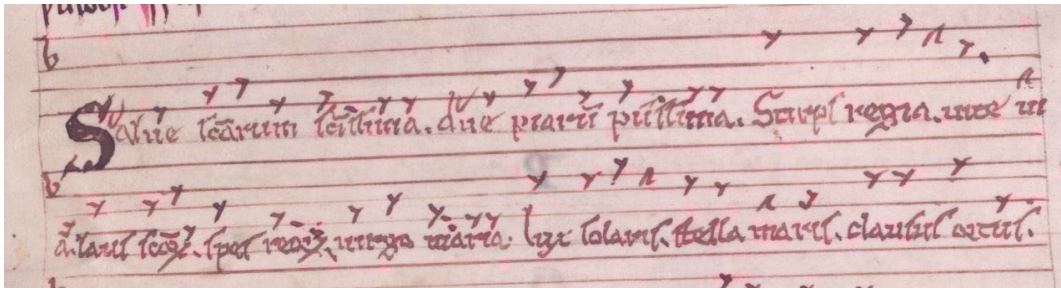 Salue sc̄arum sc̄issima. Aue piarū piissima. Stirps regia. uite ui
a. laus sc̄oꝝ. spes reoꝝ. uirgo maria. lux solaris. stella maris. clausus ortus.